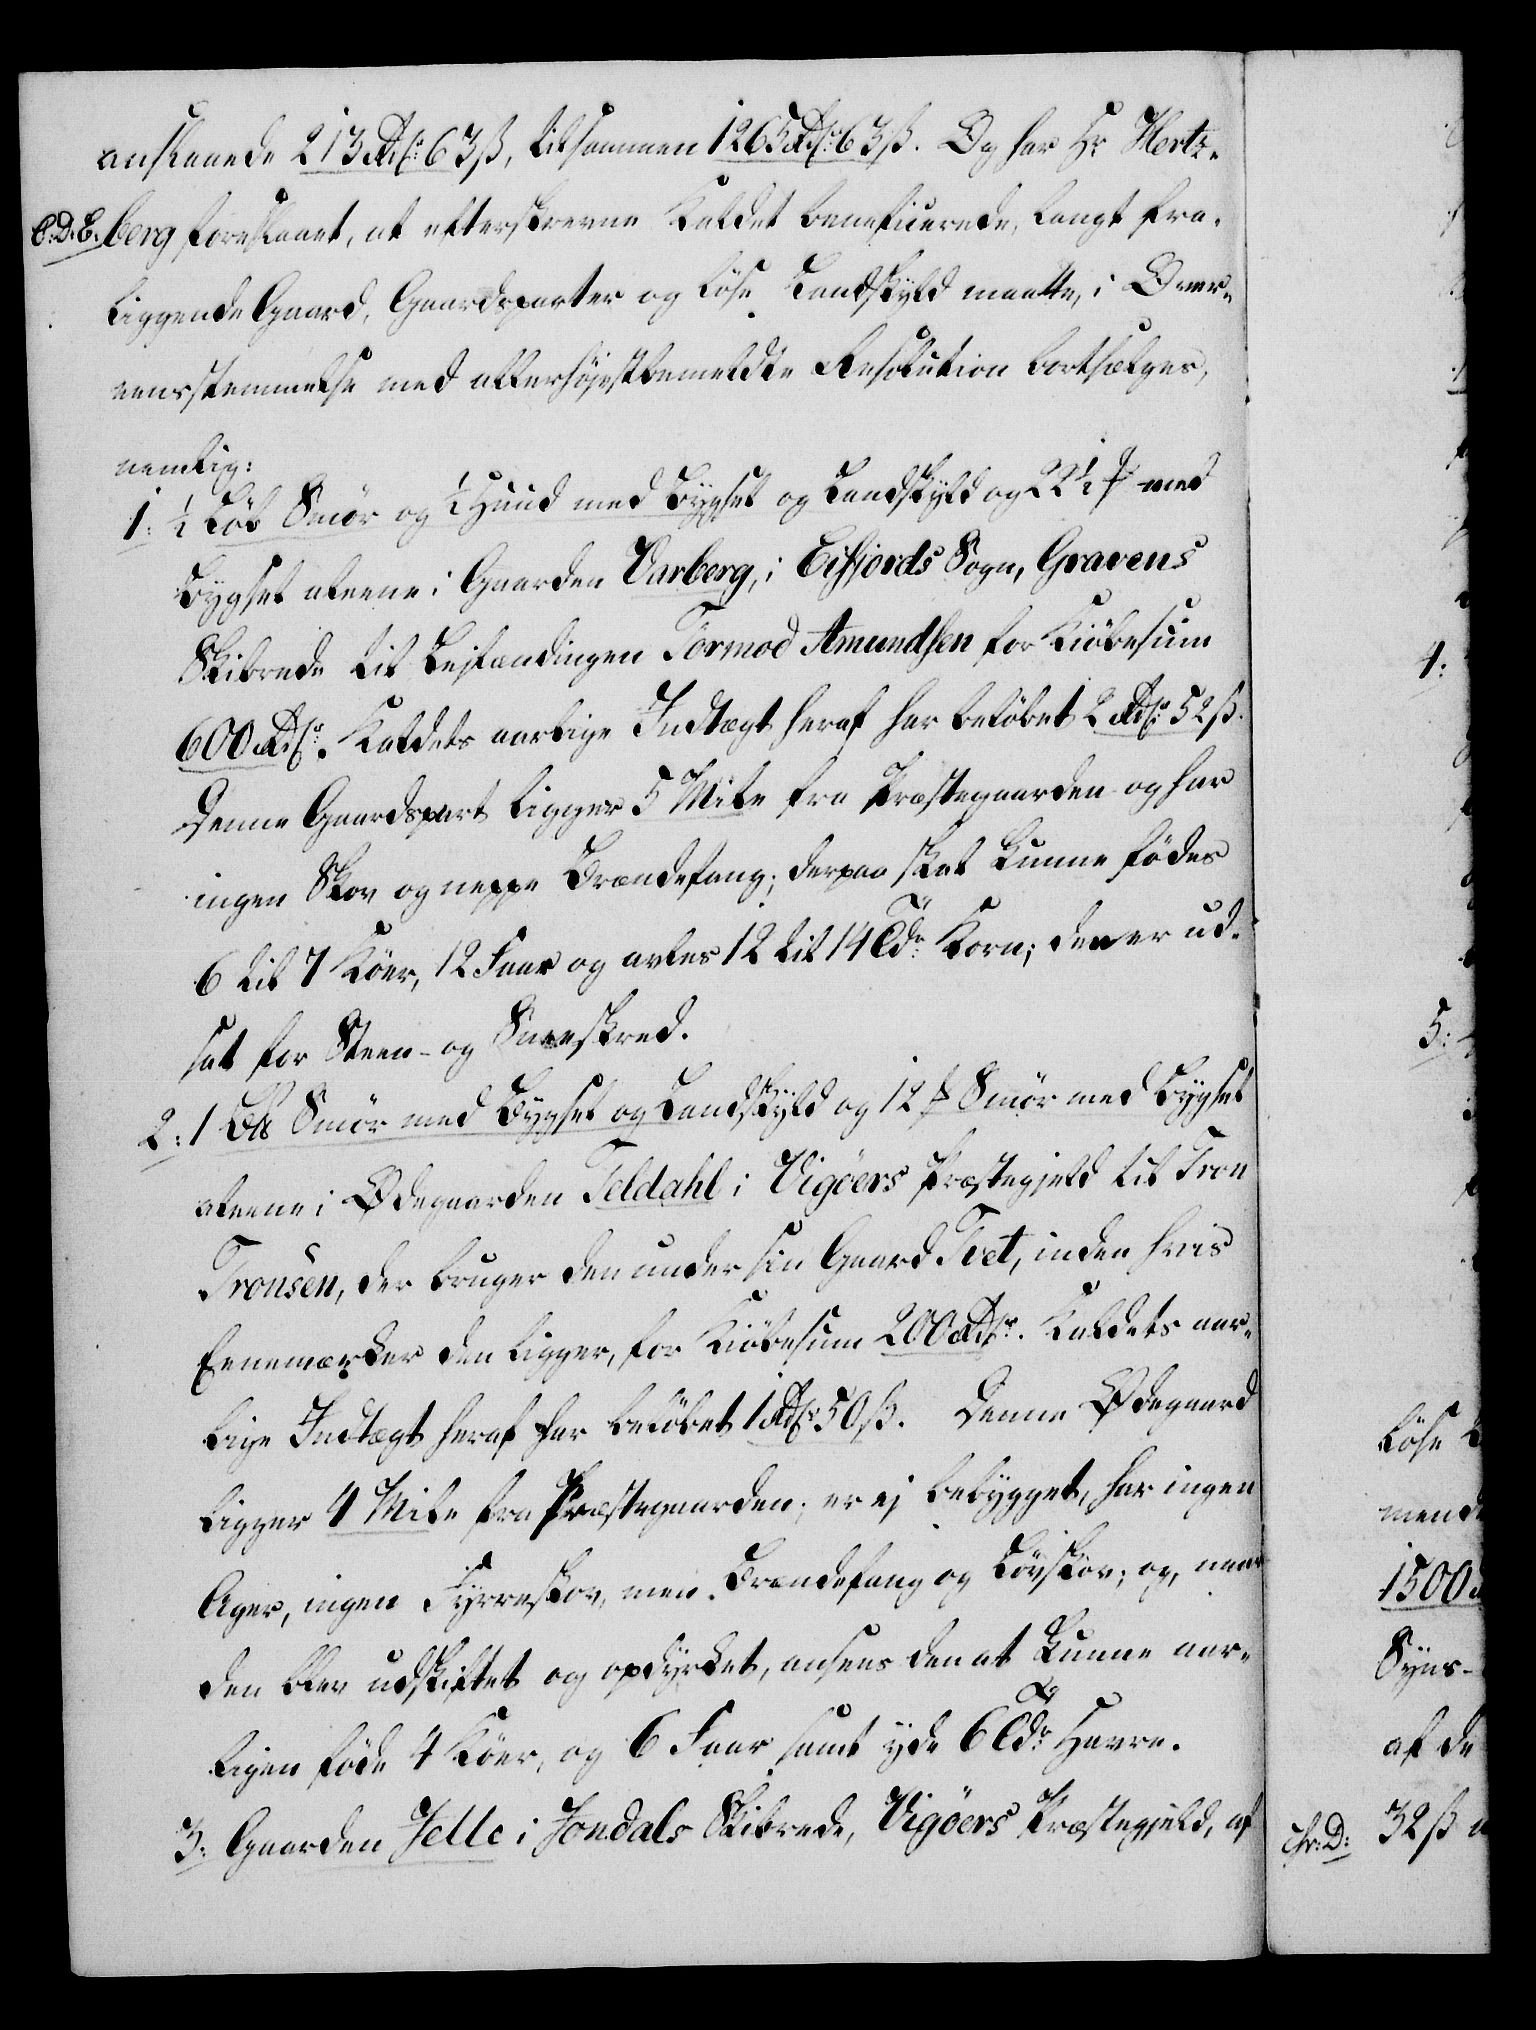 anslaaede 213 Rdlr 63 ß, tilsammen 1265 Rdlr 63 ß. Og har Hr Hertz-
berg foreslaaet, at efterskrevne Kaldet beneficerede, langt fra-
liggende Gaard, Gaardsparter og löse Landskyld maatte, i Over-
eensstemmelse med allerhöjestbemeldte Resolution bortsælges,
nemlig:
1: ½ Löb Smör og ½ Huud med Bygsel og Landskyld og 22½ ℔ med
Bygsel alene i Gaarden Varberg, i Eifjords Sogn, Gravens
Skibrede til Leilændingen Tormod Amundsen for Kiöbesum
600 Rdlr. Kaldets aarlige Indtægt heraf har belöbet 2 Rdlr 52 ß.
Denne Gaardspart ligger 5 Mile fra Præstegaarden og har
ingen Skov og neppe Brændefang; derpaa skal kunne födes
6 til 7 Köer, 12 Faar og avles 12 til 14 Tdr Korn; den er ud-
sat for Steen- og Sneeskred.
2: 1 Löb Smör med Bygsel og Landskyld og 12 ℔ Smör med Bygsel
alene i Ödegaarden Teldahl i Vigöers Præstegjeld til Tron
Tronsen, der bruger den under sin Gaard Tvet, inden hvis
Enemærker den ligger, for Kiöbesum 200 Rdlr. Kaldets aar-
lige Indtægt heraf har belöbet 1 Rdlr 50 ß. Denne Ödegaard
ligger 4 Mile fra Præstegaarden, er ej bebygget, har ingen
Ager, ingen Fyrreskov, men Brændefang og Lövskov; og, naar
den blev udskiftet og opdyrket, ansees den at kunne aar-
ligen föde 4 Köer, og 6 Faar samt yde 6 Tdr Havre.
3: Gaarden Jelle i Jondals Skibrede, Vigöers Præstegjeld, af
4:
5:
löse
1500
Syns-
af de
32 ß